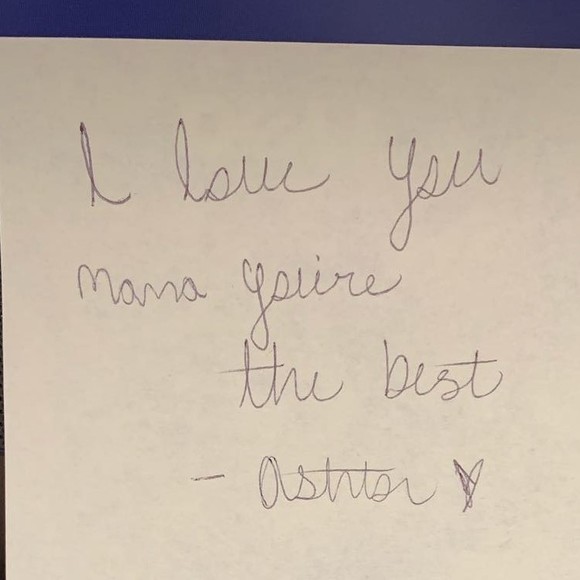 I love you
nana you're
the best
- Ashton ♥